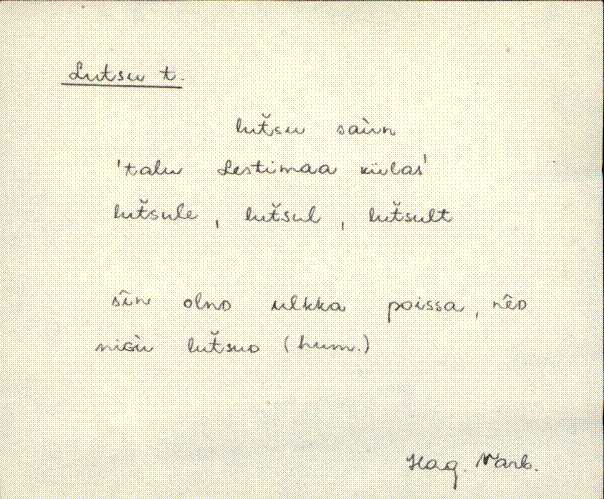 Lutsu t.
lut̆su saùn
'talu Lestimaa külas'
lut̆sule, lut̆sul, lut̆sult
sîn olnᴅ ulkka poissa, nêᴅ
niɢù lut̆suᴅ (hum.)
Hag. Varb.